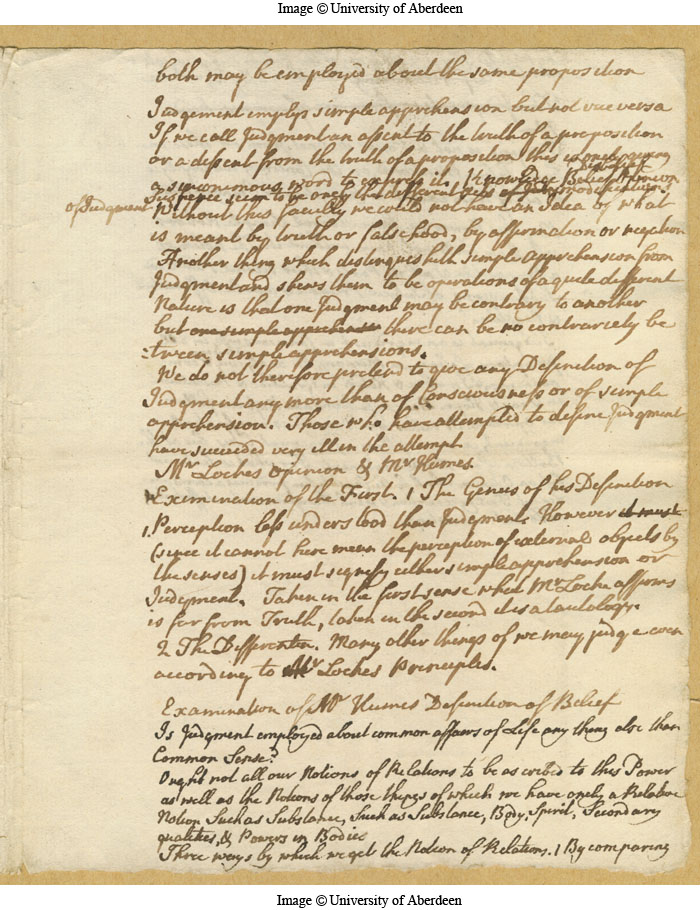 Image © University of Aberdeen
both may be employed about the same proposition
Judgement implys simple apprehension but not vice versa
If we call Judgment an assent to the truth of a proposition
or a dissent from the truth of a proposition this is only giving
a sinonimous word to express it. Knowledge Belief Opinion
Suspence seem to be only the different
of Judgment
Without this faculty we could not have an Idea of what
is meant by truth or falsehood, by affirmation or negation
Another thing which distinguisheth simple apprehension from
Judgment and shews them to be operations of a quite different
Nature is that one Judgment may be contrary to another
but one simple apprehension there can be no contrariety be
:tween simple apprehensions.
We do not therefore pretend to give any Definition of
Judgment any more than of Consciousness or of simple
apprehension. Those who have attempted to define Judgment
have succeeded very ill in the attempt.
Mr Lockes opinion & Mr Humes.
Examination of the First. 1 The Genus of his Definition
1. Perception less understood than Judgment. However it must
(since it cannot here mean the perception of external objects by
the senses) it must signify either simple apprehension or
Judgment. Taken in the first sense what Mr Locke affirms
is far from Truth, taken in the second it is a tautology.
2 The Differentia. Many other things of we may judge even
according to Mr Lockes Principles.
Examination of Mr Humes Definition of Belief
Is Judgment employed about common affairs of Life any thing else than
Common Sense?
Ought not all our Notions of Relations to be ascribed to this Power
as well as the Notions of those things of which we have onely a Relative
Notion Such as Substance, Such as Substance, Body, Spirit, Secondary
qualities, & Powers in Bodies
Three ways by which we get the Notion of Relations. 1 By comparing
Image © University of Aberdeen